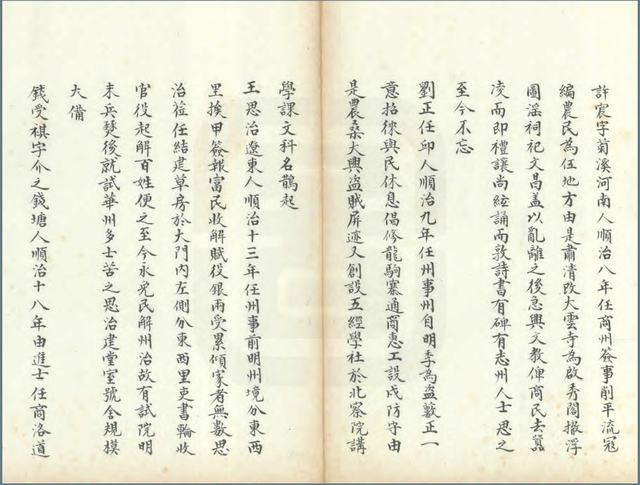 許宸字菊溪河南人順治八年任商州僉事削平流寇
編農民為伍地方由是肅清改大雲寺為啟秀閣撤浮
圖滛祠祀文昌盖以亂離之後急興文教俾商民去嚚
凌而即禮讓尚絃誦而敦詩書有碑有志州人士思之
至今不忘
劉正任邱人順治九年任州事州自明季為盜藪正一
意招徠與民休息倡修龍駒寨通商惠工設戍防守由
是農桑大興盜賊屏迹又創設五經學社於北察院講
學課文科名鵲起
王思治遼東人順治十三年任州事前明州境分東西
里挨甲簽報富民收解賦役銀兩受累傾家者無數思
治蒞任結建草房於大門內左側分東西里吏書輪收
官役起解百姓便之至今永免民解州治故有試院明
末兵燹後就試華州多士苦之思治建堂室號舍規模
大備
錢受祺字介之錢塘人順治十八年由進士任商洛道